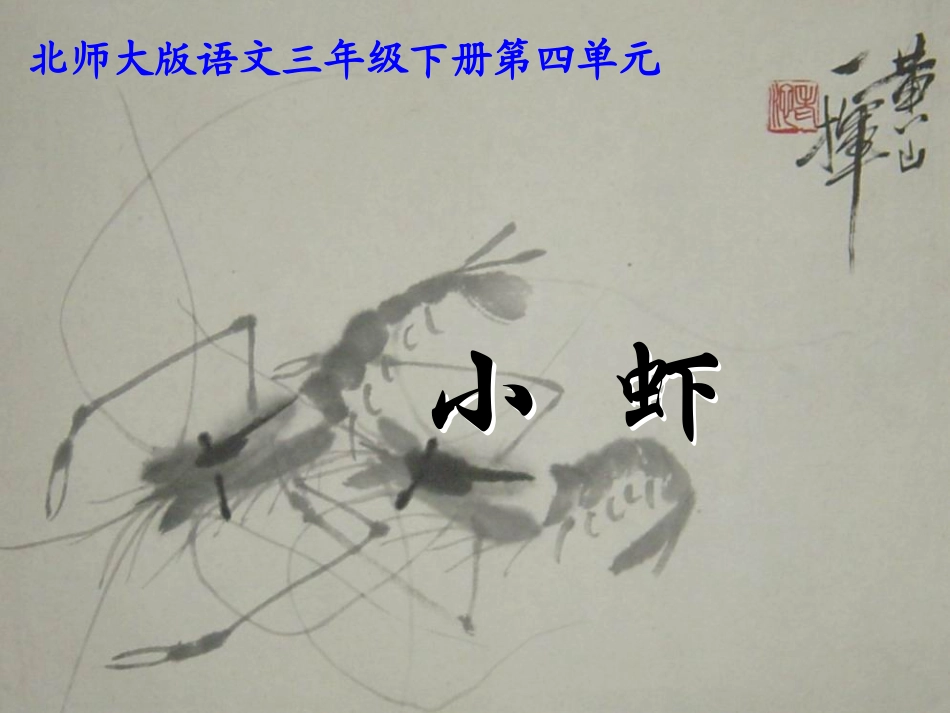 北师大版语文三年级下册第四单元
黄山
一挥
小 虾